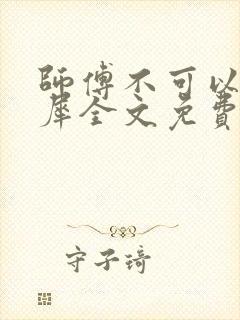 師傅不可以
犀全文免費
守子琦